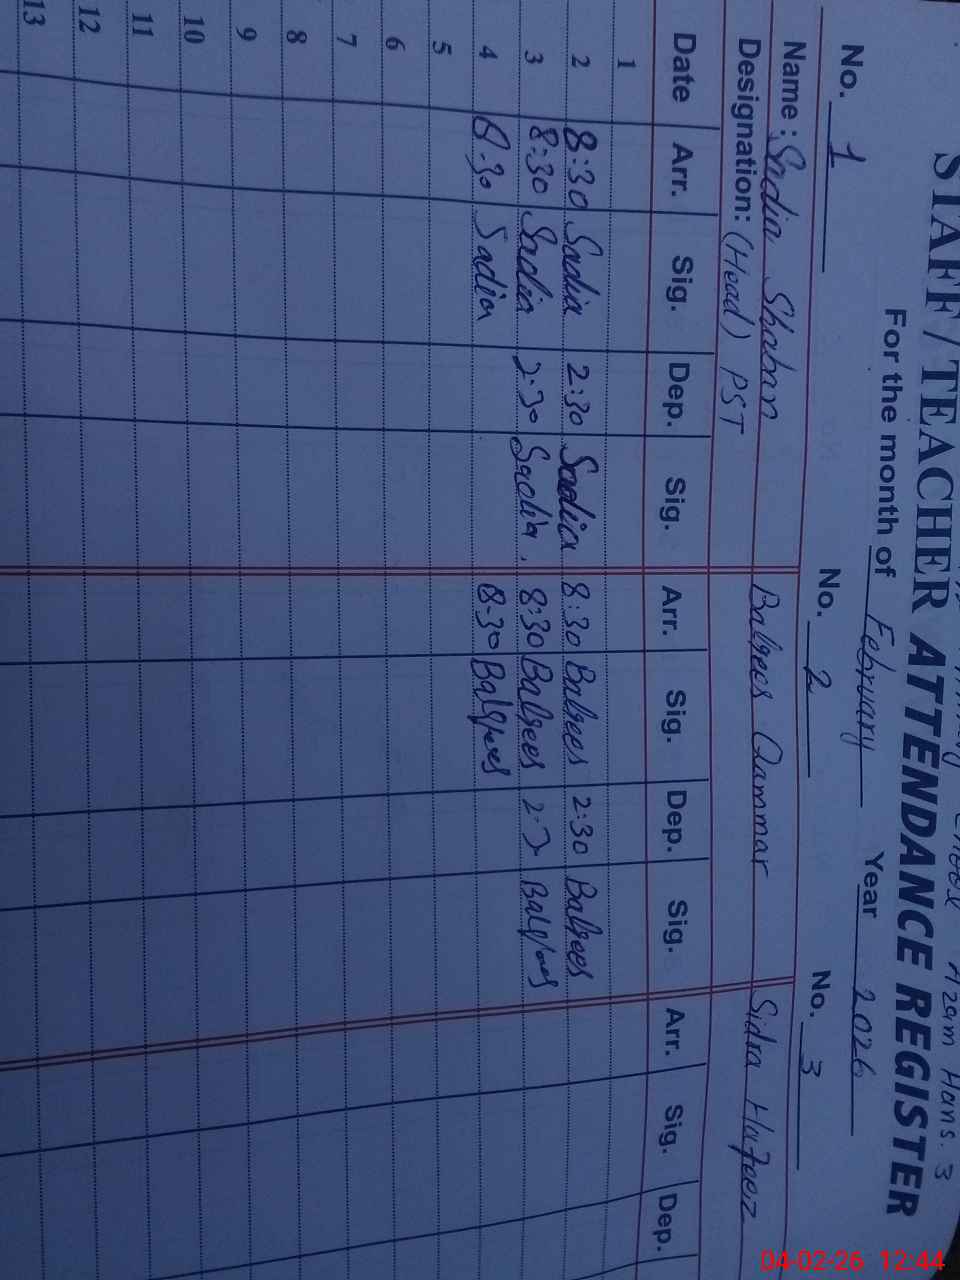 Azam Hans. 3
STAFF / TEACHER ATTENDANCE REGISTER
For the month of February Year 2026
No. 1 No. 2 No. 3
Name : Sadia Shabnn Balqees Qammar Sidra Hafeez
Designation: (Head) PST
Date Arr. Sig. Dep. Sig. Arr. Sig. Dep. Sig. Arr. Sig. Dep.
1
2 8:30 Sadia 2:30 Sadia 8:30 Balqees 2:30 Balqees
3 8:30 Sadia 2:30 Sadia 8:30 Balqees Balqees
4 8:30 Sadia 8-30 Balqees
5
6
7
8
9
10
11
12
13
04-02-26 12:44